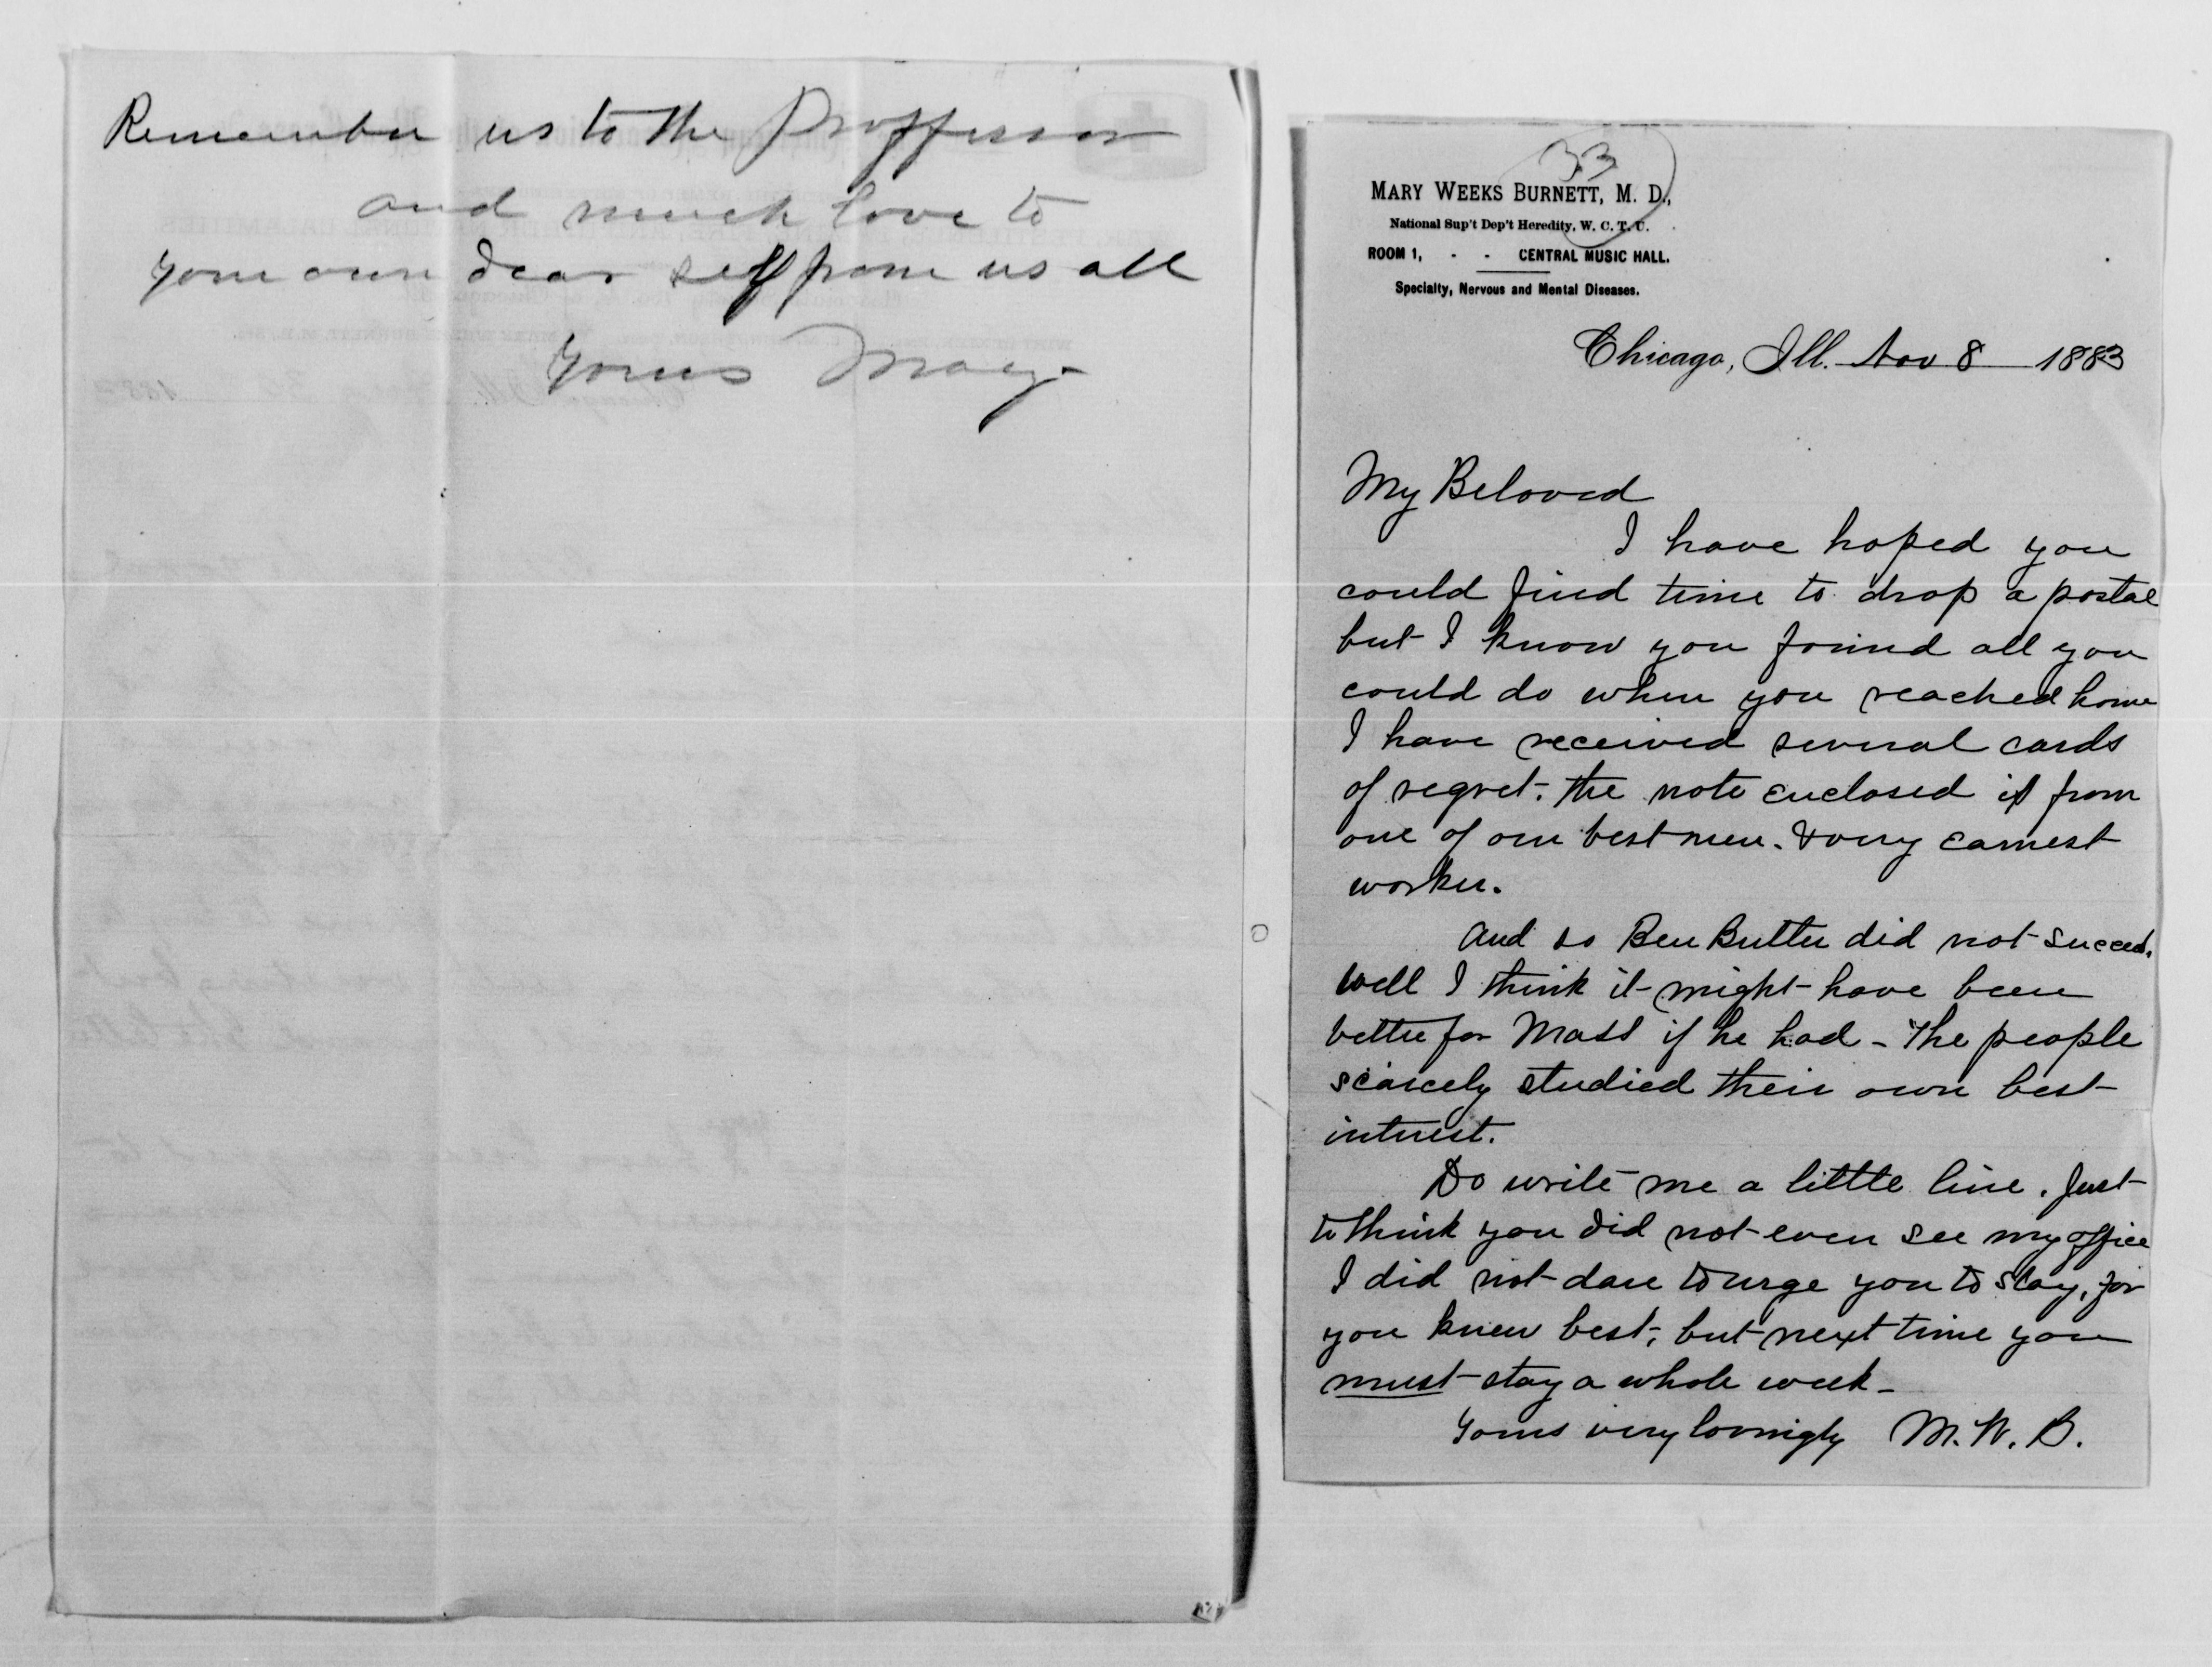 Remember us to the Proffessor
and much love to
your own dear self from us all
Yours Mary
33
MARY WEEKS BURNETT, M. D.,
National Sup't Dep't Heredity, W. C. T. U.
ROOM 1, - - CENTRAL MUSIC HALL.
Specialty, Nervous and Mental Diseases.
Chicago, Ill. Nov 8 1883
My Beloved
I have hoped you
could find time to drop a postal
but I know you found all you
could do when you reached home
I have received several cards
of regret. the note enclosed is from
one of our best men. & very earnest
worker.
And so Ben Butler did not succeed.
Well I think it might have been
better for Mass if he had - The people
scarcely studied their own best
interest.
Do write me a little line. Just
to think you did not even see my office
I did not dare to urge you to stay, for
you knew best, but next time you
must stay a whole week -
Yours very lovingly M. W. B.